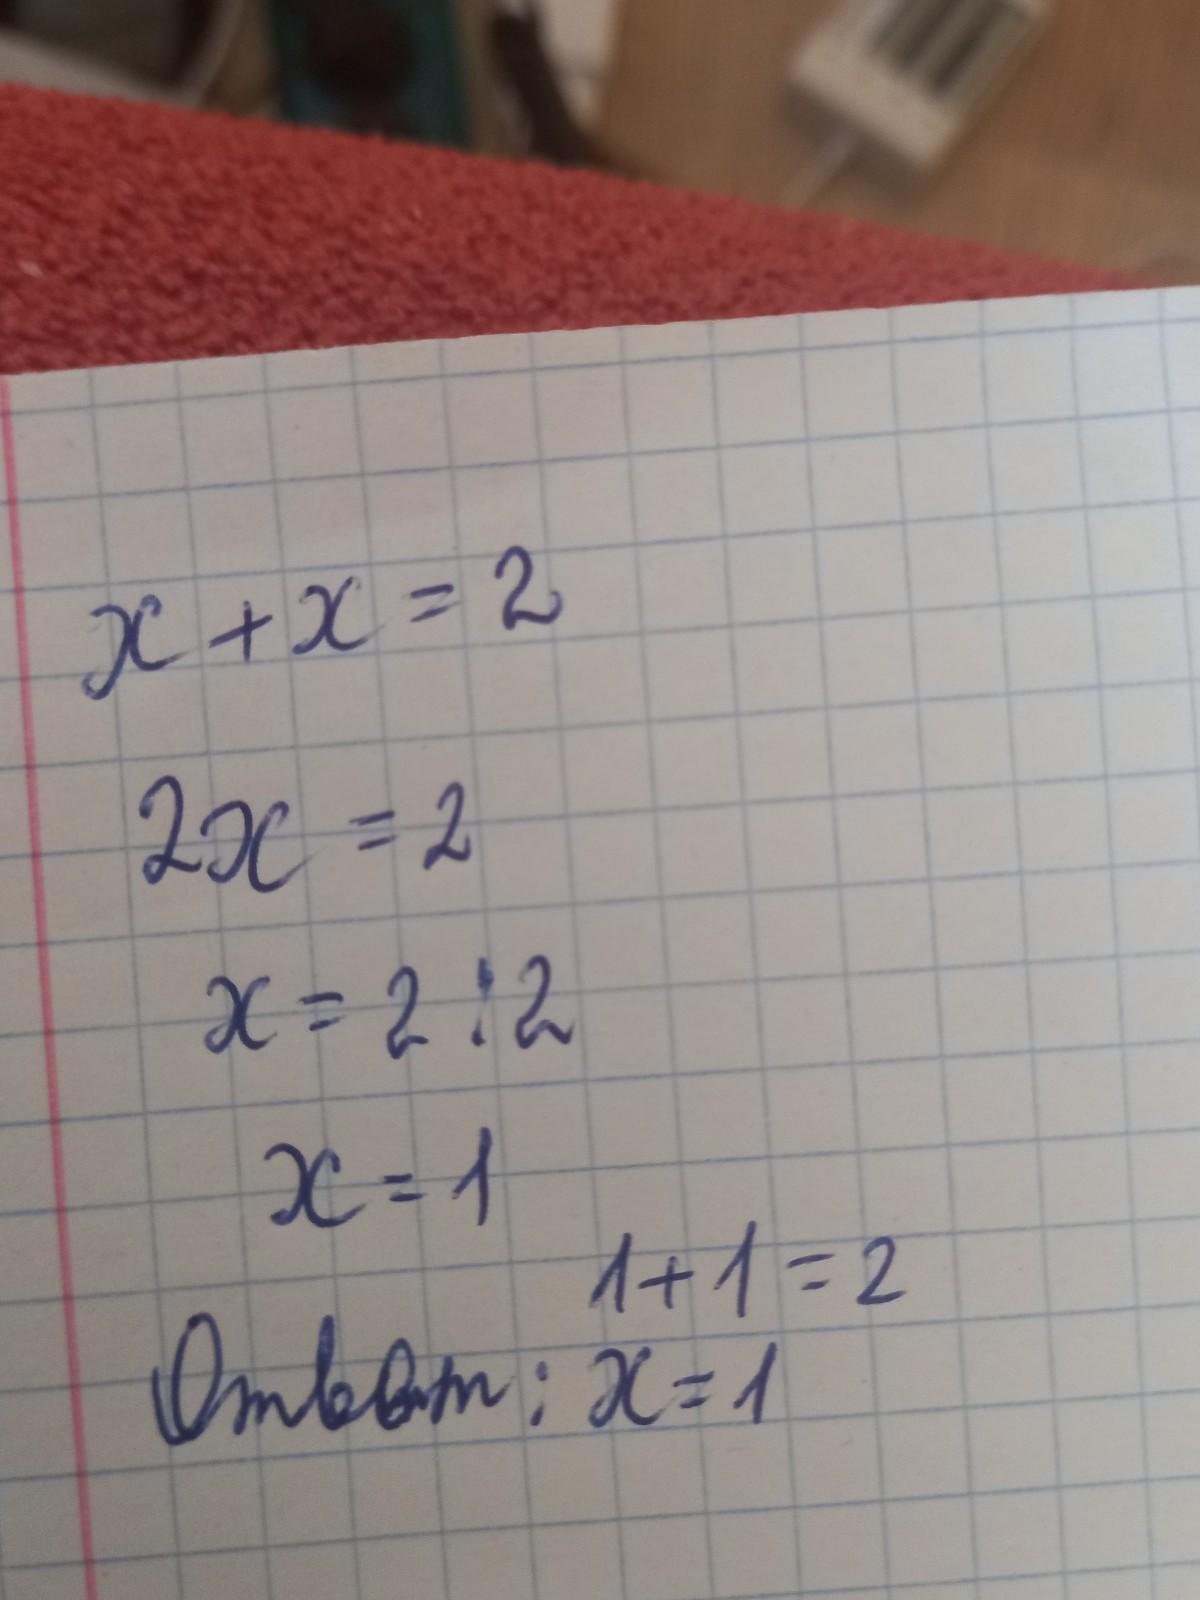 x + x = 2
2x = 2
x = 2 : 2
x = 1
1 + 1 = 2
Ответ : x = 1